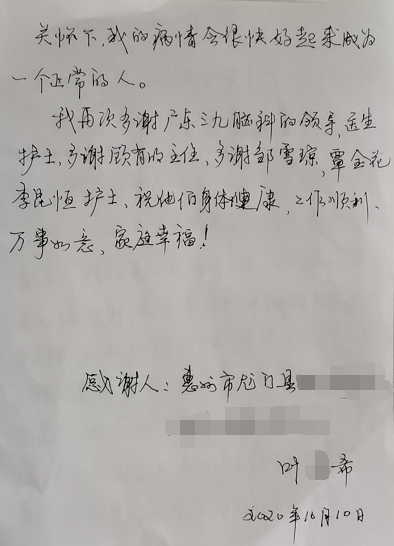 关怀下,我的病情会很快好起来成为
一个正常的人。
我再次多谢广东三九脑科的领导,医生
护士,多谢顾有的主任,多谢邹雪琼,覃金花
李昆恒护士,祝他们身体健康,工作顺利、
万事如意,家庭幸福!
感谢人:惠州市龙门县
叶 希
2020年10月10日